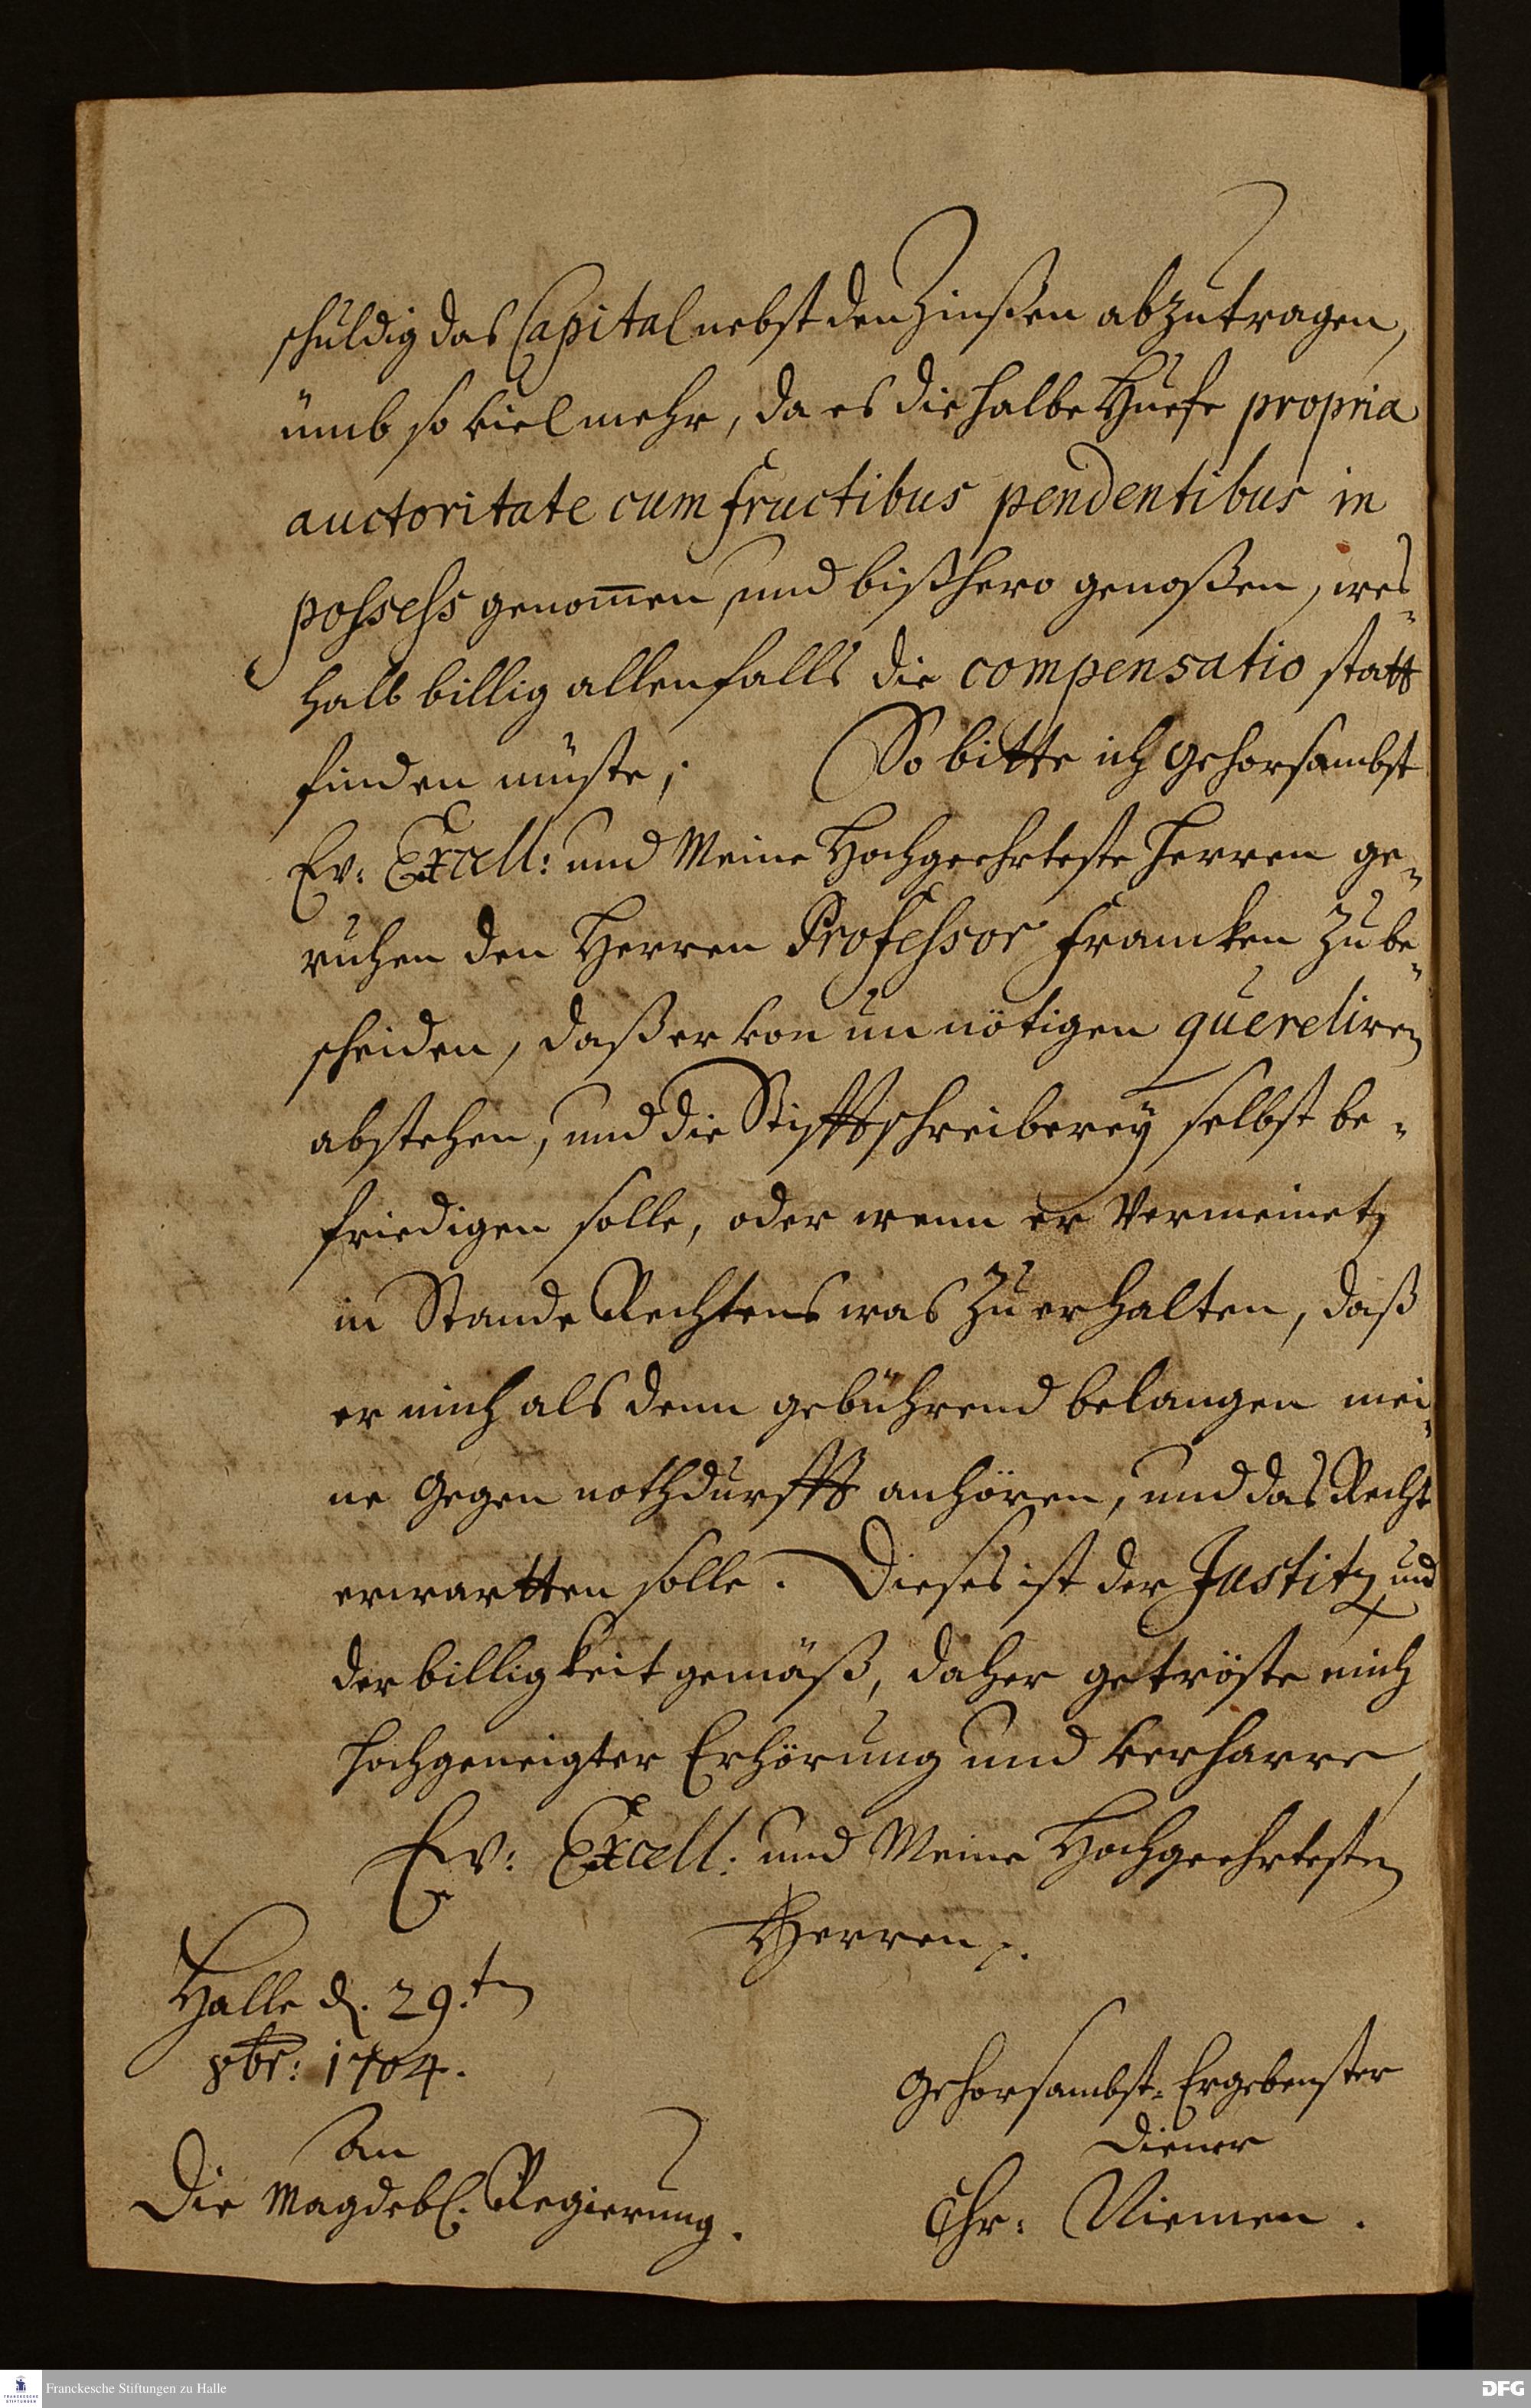 schuldig das Capital nebst den Zinßen abzutragen,
ümb so viel mehr, da es die halbe Huefe propria
auctoritate cum fructibus pendentibus in
possess genom̅en und bißhero genoßen, wes-
halb billig allenfalls die compensatio statt
finden müste; So bitte ich gehorsambst
Ew: Excell: und Meine Hochgeehrteste Herren ge-
ruhen den Herren Professor Francken zu be-
scheiden, daß er von unnötigen quereliren
abstehen, und die Stifftsschreiberey selbst be-
friedigen solle, oder wenn er Vermeinet,
in Stande Rechtens was zu erhalten, daß
er mich als denn gebührend belangen mei-
ne gegen nothdurfft anhören, und das Recht
erwartten solle. Dieses ist der Justitz und
der billigkeit gemäß, daher getröste mich
hochgeneigter Erhörung und verharre
Ew: Excell: und Meine Hochgeehrtesten
Herren p.
Halle d. 29.ten
8br: 1704.
Gehorsambst-Ergebenster
Diener
An
Die Magdebl. Regierung.
Chr: Niemen.
Franckesche Stiftungen zu Halle
DFG